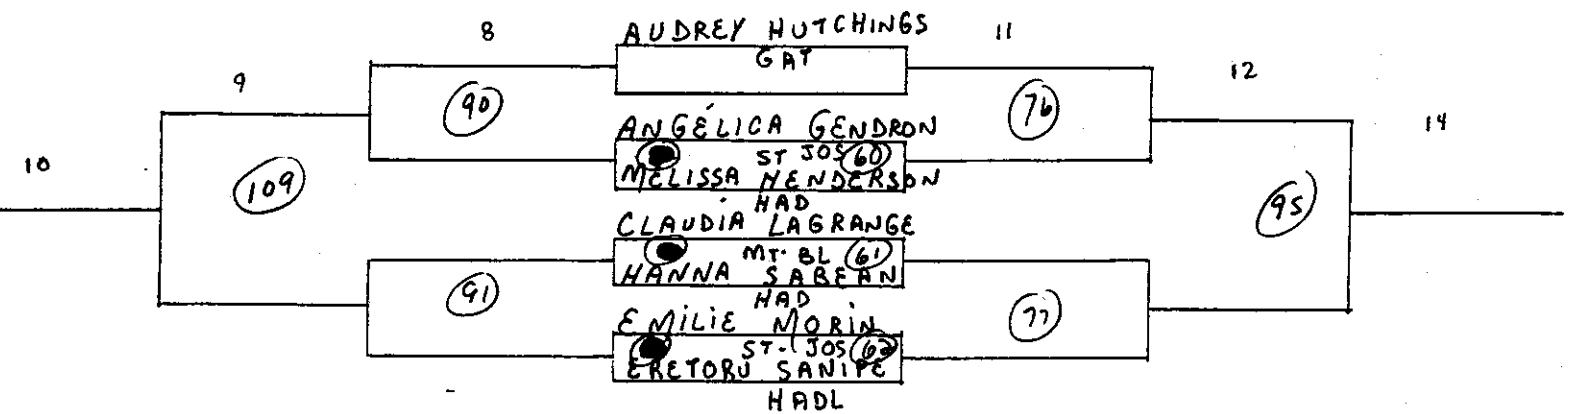 8
AUDREY HUTCHINGS
11
GAT
9
12
90
76
ANGÉLICA GENDRON
14
ST JOS 60
10
MÉLISSA HENDERSON
109
HAD
95
CLAUDIA LAGRANGE
MT. BL 61
HANNA SABEAN
91
HAD
77
EMILIE MORIN
ST. JOS 62
ERETORU SANIPE
HADL